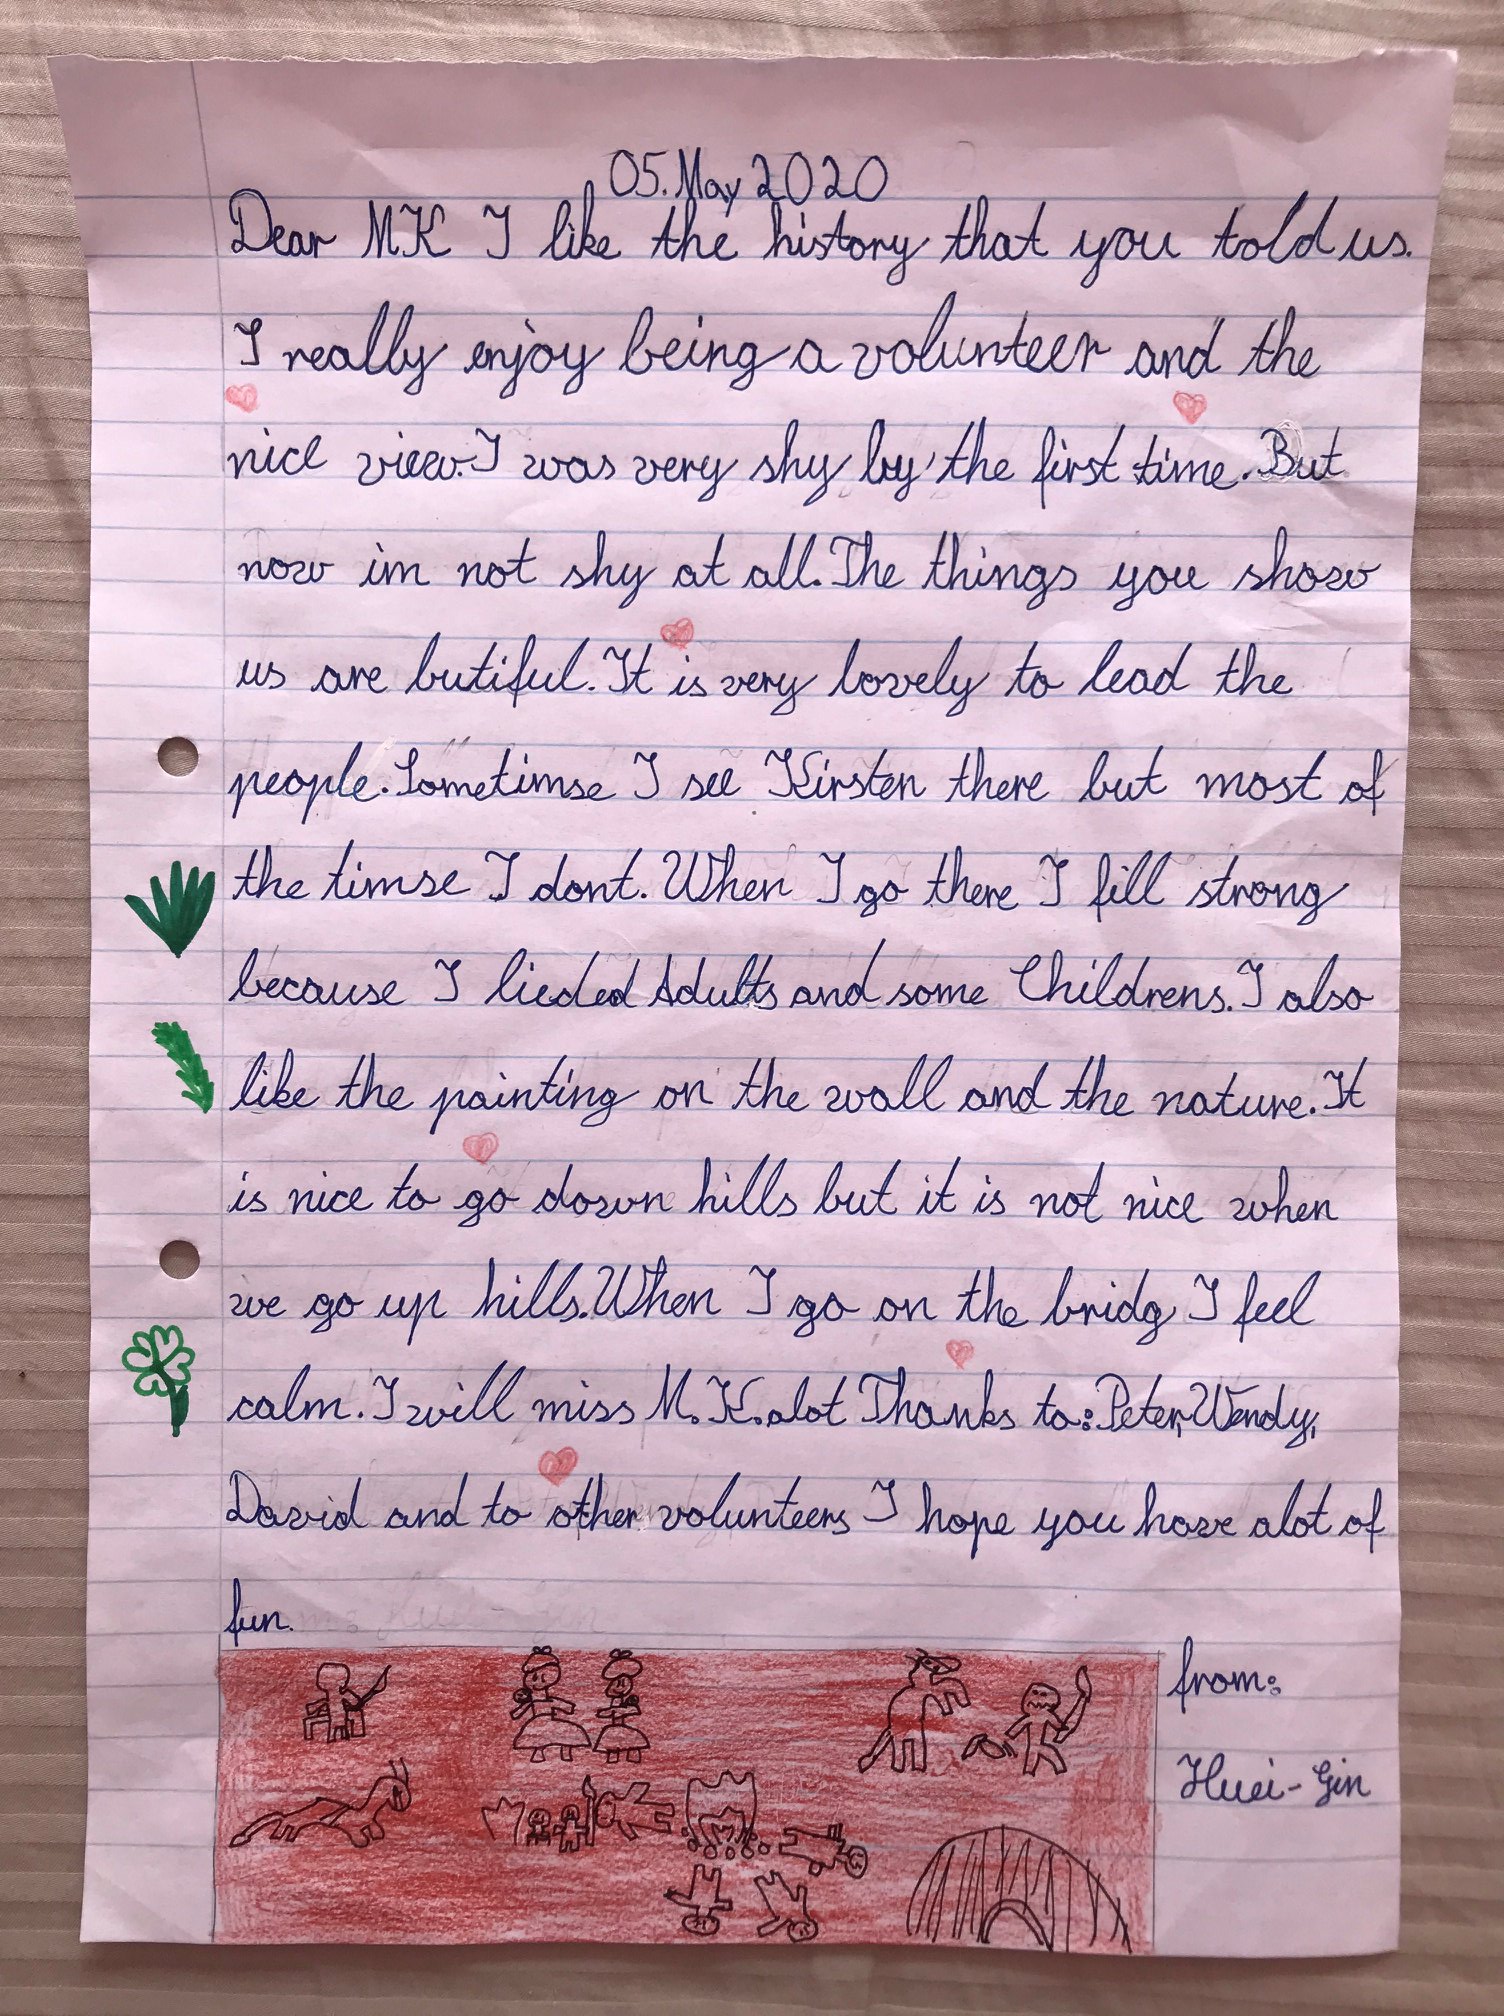 05. May 2020
Dear M.K I like the history that you told us.
I really enjoy being a volunteer and the
nice view. I was very shy by the first time. But
now im not shy at all. The things you show
us are butiful. It is very lovely to lead the
people. Sometimse I see Kirsten there but most of
the timse I dont. When I go there I fill strong
because I lieded Adults and some Childrens. I also
like the painting on the wall and the nature. It
is nice to go down hills but it is not nice when
we go up hills. When I go on the bridg I feel
calm. I will miss M.K. alot Thanks to: Peter, Wendy,
David and to other volunteers I hope you have alot of
fun.
from:
Huei-Gin